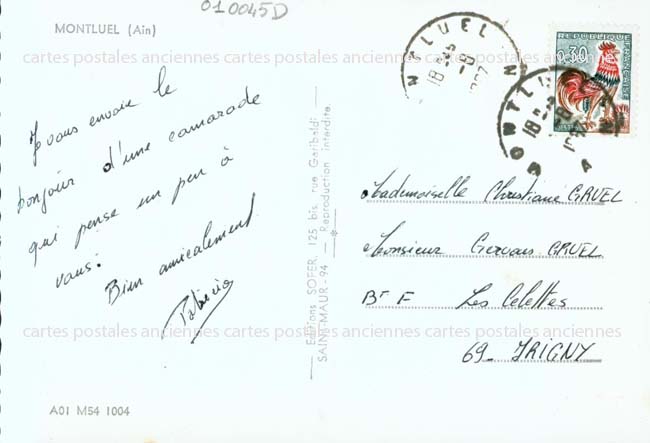 010045D
MONTLUEL (Ain)
cartes postales anciennes cartes postales anciennes cartes postales anciennes
Je vous envoie le
bonjour d'une camarade
qui pense un peu à
vous.
Bien amicalement
Patricia
Editions SOFER, 125 bis, rue Garibaldi
SAINT-MAUR-94 — Reproduction interdite
NTLUEL
18 H 45
REPUBLIQUE
FRANÇAISE
0,30
Mademoiselle Christiane GRUEL
Monsieur Gervais GRUEL
Bt F Les Celettes
69 - IRIGNY
cartes postales anciennes cartes postales anciennes cartes postales anciennes
A01 M54 1004